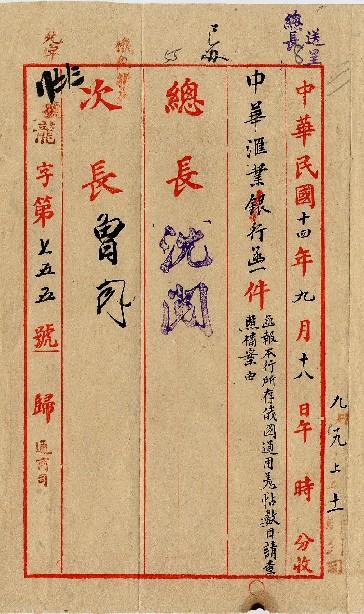 送呈
總長
中華民國十四年九月十八日午時分收
九 九 上 十一
中華滙業銀行函一件
函報本行所存俄國通用羗帖數目請查
照檔案由
總長 沈閱
55
次長 曾閱
字第七五五號歸通商司